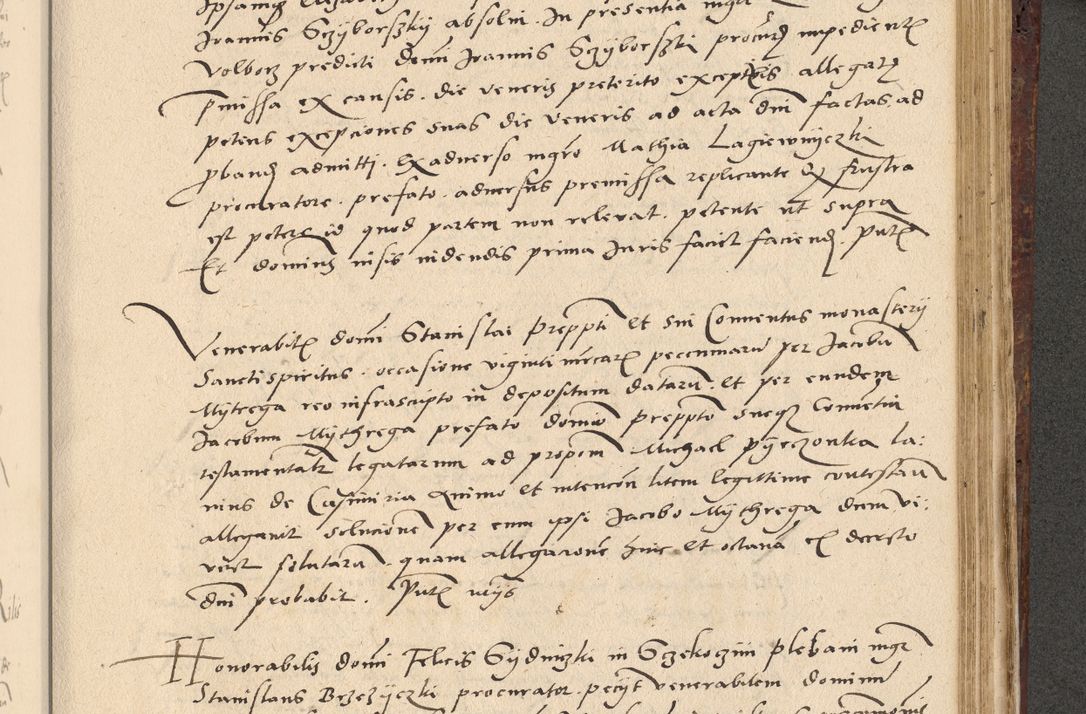 Joannis Sczyborszky absolvi. In presentia
Volborz predicti domini Joannis Sczyborszki procur impedient
pmissa ex causis. die veneris preterito exceptis allegat
petens excepciones suas die veneris ad acta dni factas ad
pband admitti. Ex adverso mgro Mathia Lagiewnyczki
procuratore. prefato. adversus premissa replicante Q frustra
est petere id quod partem non relevat. petente ut supra
Et dominus visis videndis prima Juris faciet faciend. pnte
Venerabil domi Stanislai Preppti et sui Conventus monasterij
Sancti spiritus. occasione viginti mrcar pecuniaru per Jacobu
Mytrega reo infrascripto in depositum dataru. et per eundem
Jacobum Mythrega prefato domino Preppto sueq Conventui
testamentalr legatarum ad propom Michael Pyeczonka la:
nius de Casimiria Animo et intencon litem legittime contestan
allegavit solucione per eum ipsi Jacobo Mythrega dum vi:
veret solutaru. quam allegacione hinc et octava ex decreto
dni probabit. Pnte vicijs
Honorabilis domi Felicis Sydniczki in Sczekoczini plebani mgr
Stanislaus Brzezyczki procurator. pecijt venerabilem dominu